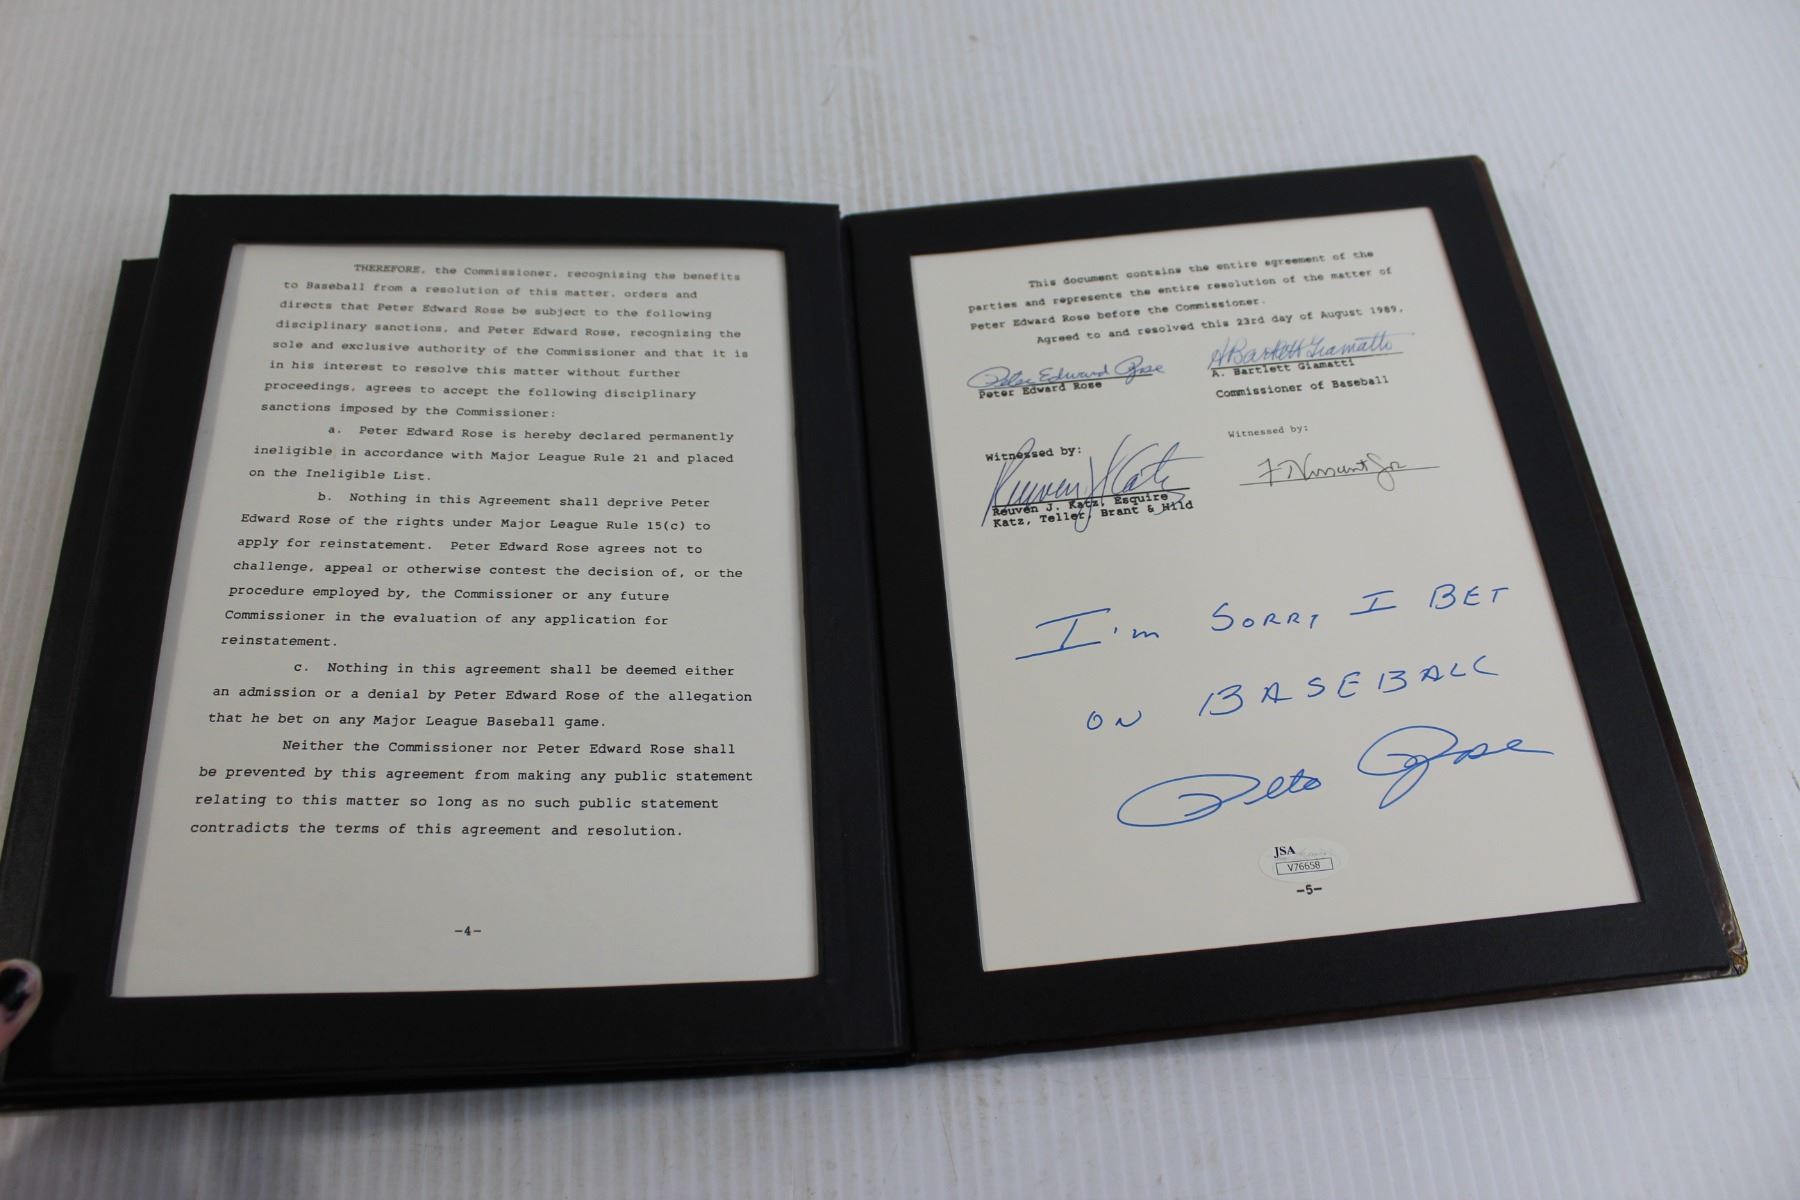 THEREFORE, the Commissioner, recognizing the benefits
to Baseball from a resolution of this matter, orders and
directs that Peter Edward Rose be subject to the following
disciplinary sanctions, and Peter Edward Rose, recognizing the
sole and exclusive authority of the Commissioner and that it is
in his interest to resolve this matter without further
proceedings, agrees to accept the following disciplinary
sanctions imposed by the Commissioner:
a. Peter Edward Rose is hereby declared permanently
ineligible in accordance with Major League Rule 21 and placed
on the Ineligible List.
b. Nothing in this Agreement shall deprive Peter
Edward Rose of the rights under Major League Rule 15(c) to
apply for reinstatement. Peter Edward Rose agrees not to
challenge, appeal or otherwise contest the decision of, or the
procedure employed by, the Commissioner or any future
Commissioner in the evaluation of any application for
reinstatement.
c. Nothing in this agreement shall be deemed either
an admission or a denial by Peter Edward Rose of the allegation
that he bet on any Major League Baseball game.
Neither the Commissioner nor Peter Edward Rose shall
be prevented by this agreement from making any public statement
relating to this matter so long as no such public statement
contradicts the terms of this agreement and resolution.
-4-
This document contains the entire agreement of the
parties and represents the entire resolution of the matter of
Peter Edward Rose before the Commissioner.
Agreed to and resolved this 23rd day of August 1989.
Peter Edward Rose
Peter Edward Rose
A Bartlett Giamatti
A. Bartlett Giamatti
Commissioner of Baseball
Witnessed by:
Reuven J Katz
Reuven J. Katz, Esquire
Katz, Teller, Brant & Hild
Witnessed by:
F Vincent Jr
I'm SORRY I BET
ON BASEBALL
Pete Rose
JSA
V76658
-5-